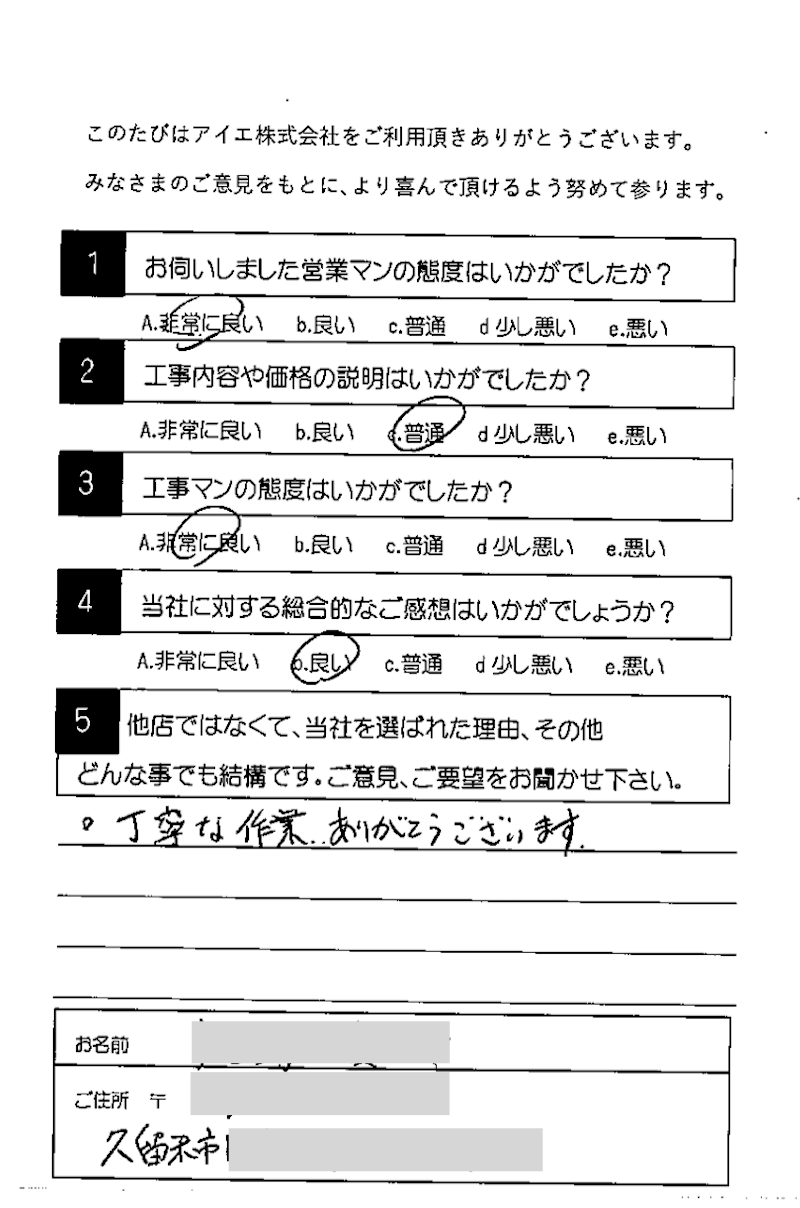 このたびはアイエ株式会社をご利用頂きありがとうございます。
みなさまのご意見をもとに、より喜んで頂けるよう努めて参ります。
1 お伺いしました営業マンの態度はいかがでしたか?
A.非常に良い b.良い c.普通 d少し悪い e.悪い
2 工事内容や価格の説明はいかがでしたか?
A.非常に良い b.良い c.普通 d少し悪い e.悪い
3 工事マンの態度はいかがでしたか?
A.非常に良い b.良い c.普通 d少し悪い e.悪い
4 当社に対する総合的なご感想はいかがでしょうか?
A.非常に良い b.良い c.普通 d少し悪い e.悪い
5 他店ではなくて、当社を選ばれた理由、その他
どんな事でも結構です。ご意見、ご要望をお聞かせ下さい。
。丁寧な作業..ありがとうございます.
お名前
ご住所 〒
久留米市